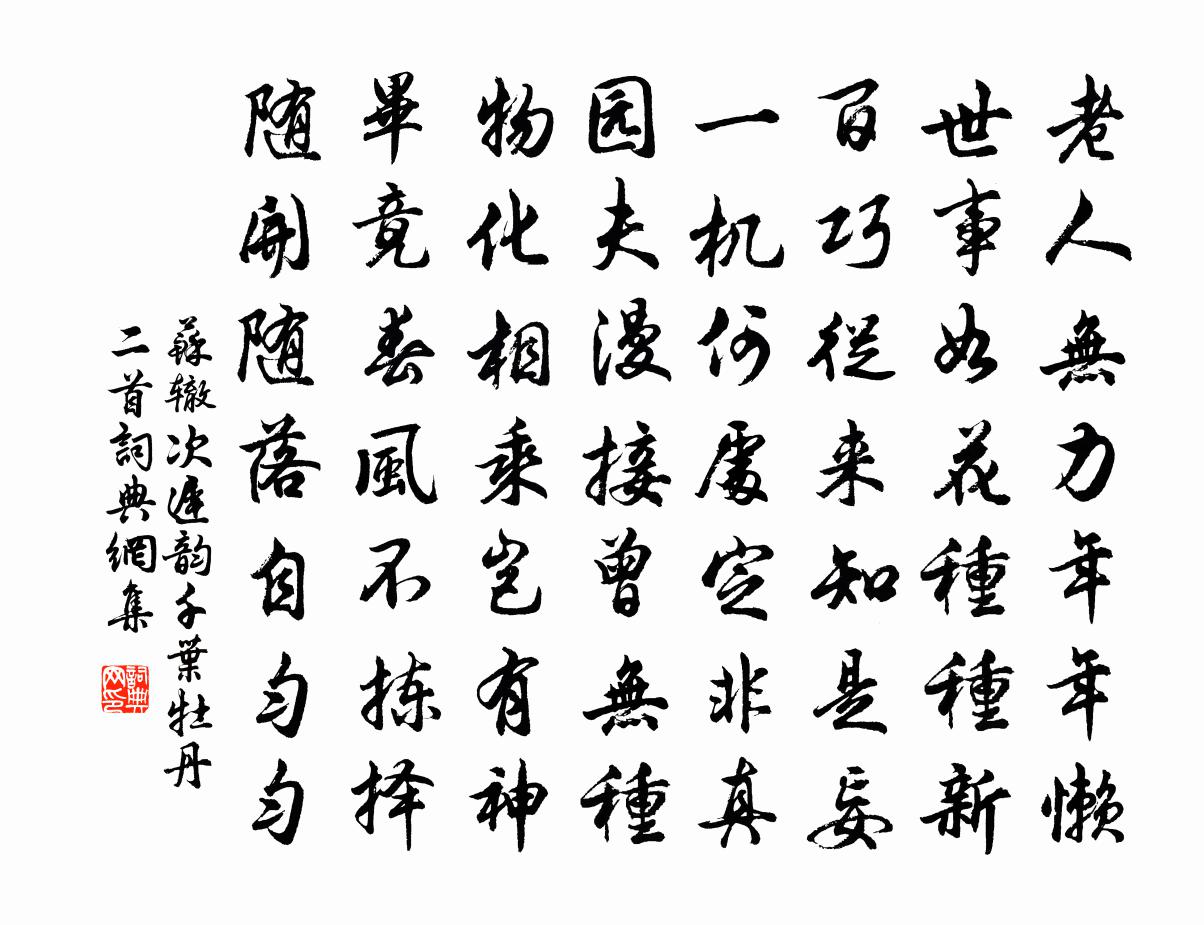 老人無力年年懒
世事如花種種新
百巧従来知是妄
一机何處定非真
园夫漫接曾無種
物化相乘岂有神
畢竟春風不拣择
随開随落自匀匀
蘇辙次遲韵千葉牡丹
二首詞典網集
詞典
网印